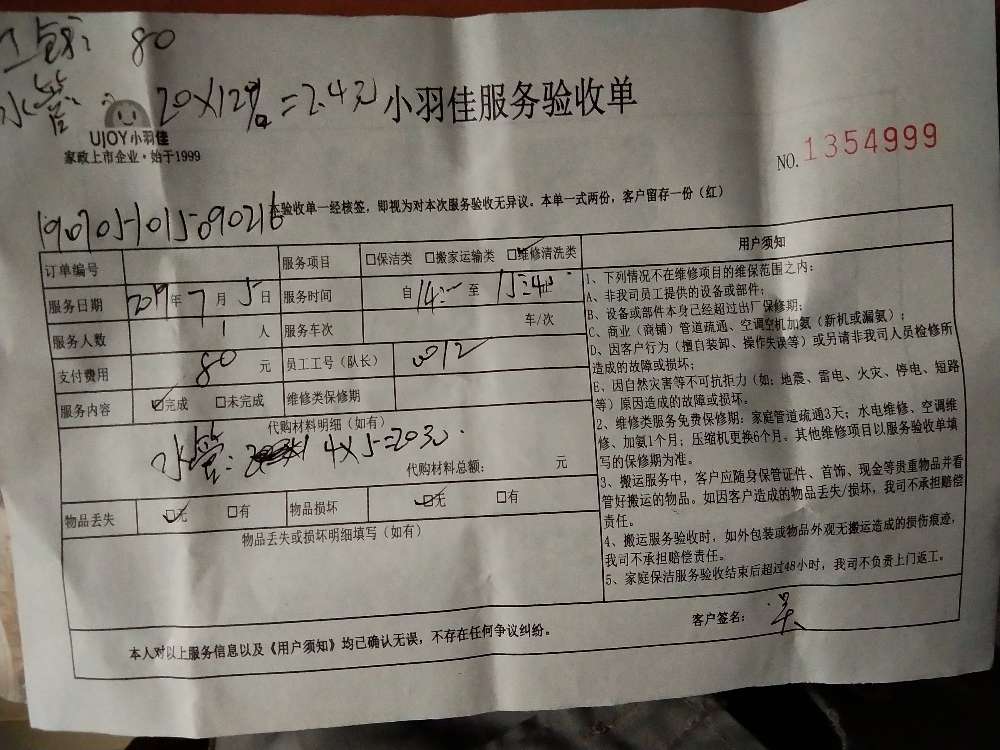 工钱: 80
水管: 20×12%=2.4元
小羽佳服务验收单
UJOY小羽佳
家政上市企业·始于1999
NO.1354999
190705-1015-090216
本验收单一经核签，即视为对本次服务验收无异议。本单一式两份，客户留存一份（红）
订单编号 服务项目 □保洁类 □搬家运输类 ☑维修清洗类
服务日期 2019年7月5日 服务时间 自14: 至15:40
服务人数 1人 服务车次 车/次
支付费用 80元 员工工号（队长） 0012
服务内容 ☑完成 □未完成 维修类保修期
代购材料明细（如有）
水管: 4×5=20元.
代购材料总额： 元
物品丢失 ☑无 □有 物品损坏 ☑无 □有
物品丢失或损坏明细填写（如有）
用户须知
1、下列情况不在维修项目的维保范围之内：
A、非我司员工提供的设备或部件；
B、设备或部件本身已经超过出厂保修期；
C、商业（商铺）管道疏通、空调空机加氨（新机或漏氨）；
D、因客户行为（擅自装卸、操作失误等）或另请非我司人员检修所
造成的故障或损坏；
E、因自然灾害等不可抗拒力（如：地震、雷电、火灾、停电、短路
等）原因造成的故障或损坏。
2、维修类服务免费保修期：家庭管道疏通3天；水电维修、空调维
修、加氨1个月；压缩机更换6个月。其他维修项目以服务验收单填
写的保修期为准。
3、搬运服务中，客户应随身保管证件、首饰、现金等贵重物品并看
管好搬运的物品。如因客户造成的物品丢失/损坏，我司不承担赔偿
责任。
4、搬运服务验收时，如外包装或物品外观无搬运造成的损伤痕迹，
我司不承担赔偿责任。
5、家庭保洁服务验收结束后超过48小时，我司不负责上门返工。
本人对以上服务信息以及《用户须知》均已确认无误，不存在任何争议纠纷。
客户签名：